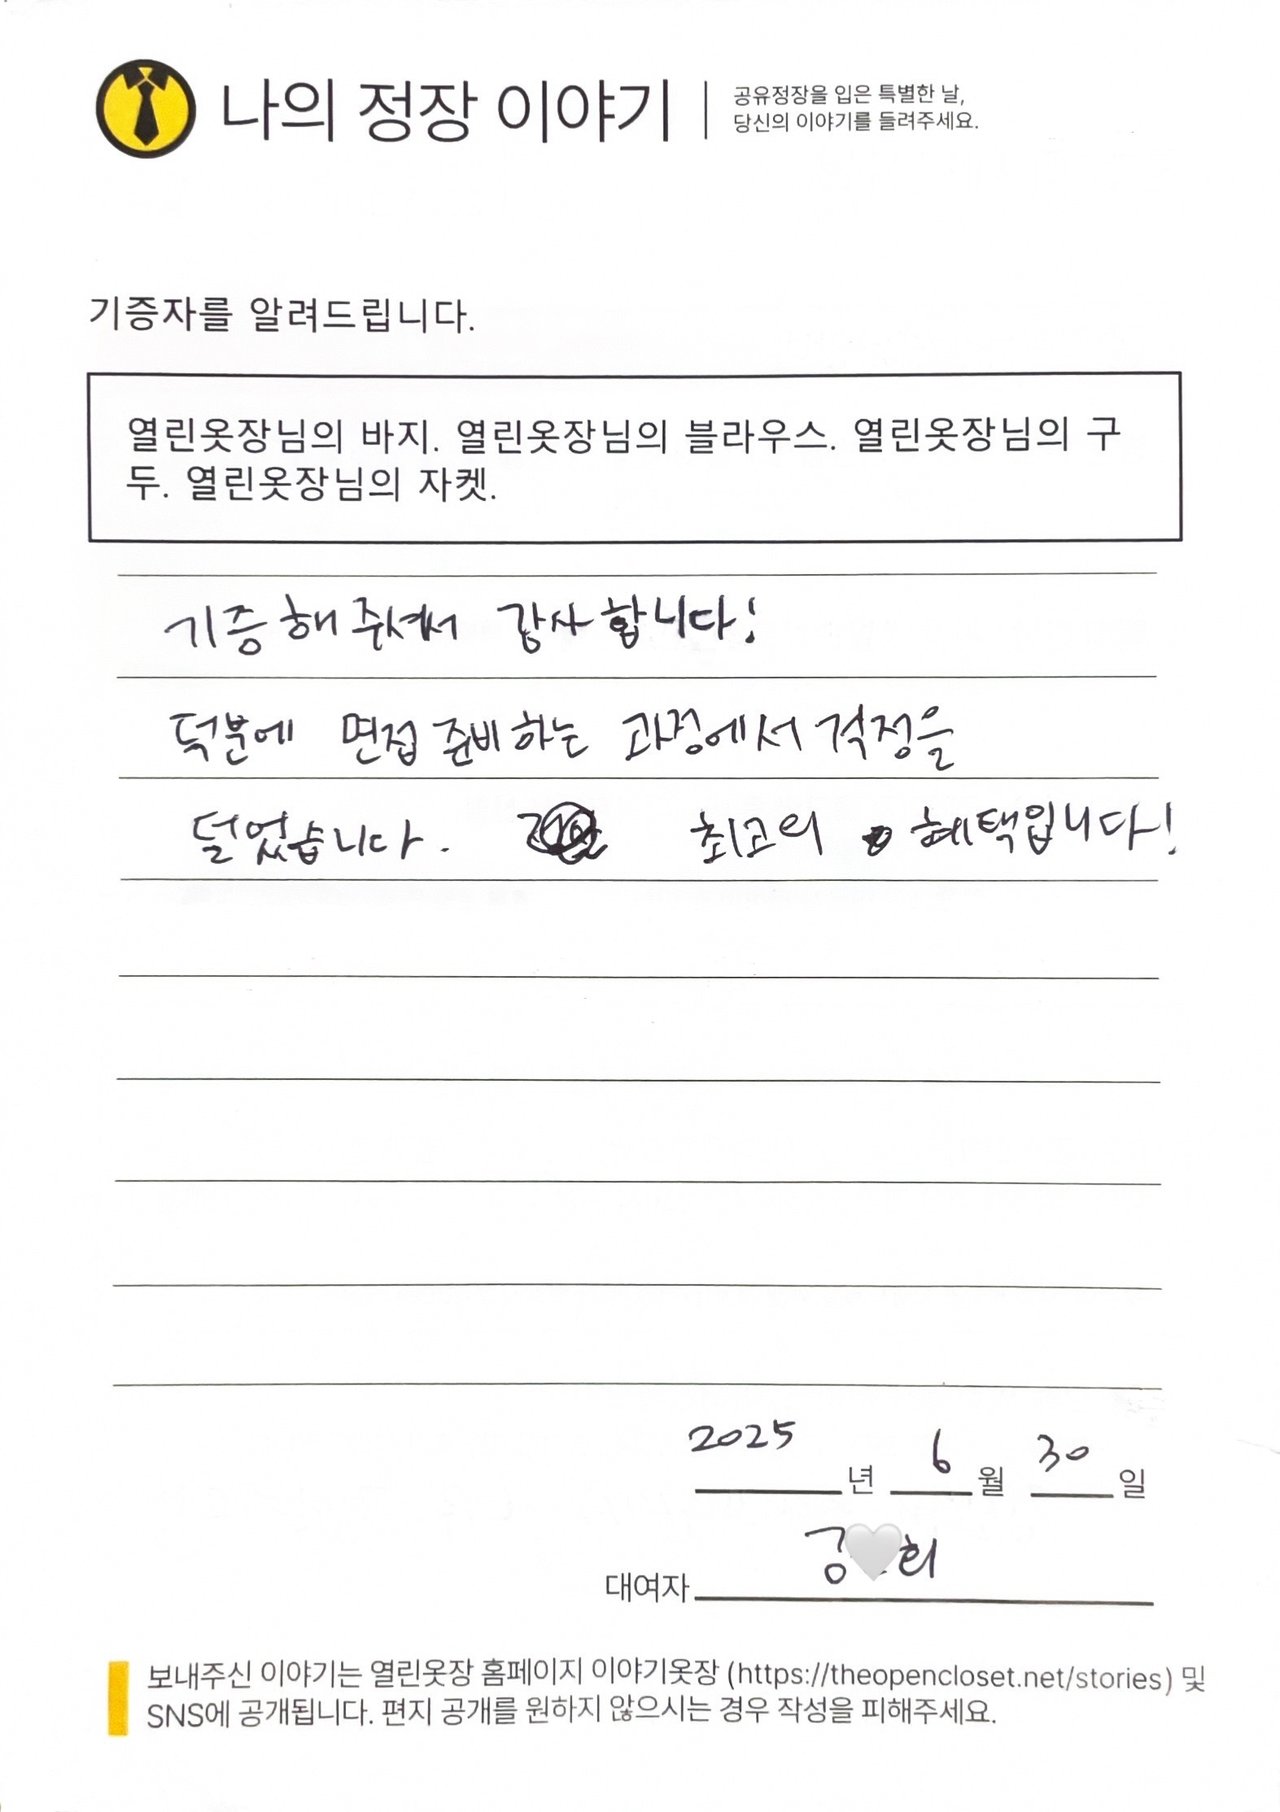 나의 정장 이야기
공유정장을 입은 특별한 날,
당신의 이야기를 들려주세요.
기증자를 알려드립니다.
열린옷장님의 바지. 열린옷장님의 블라우스. 열린옷장님의 구
두. 열린옷장님의 자켓.
기증해주셔서 감사합니다!
덕분에 면접 준비하는 과정에서 걱정을
덜었습니다. 최고의 혜택입니다!
2025 년 6 월 30 일
대여자 공 희
보내주신 이야기는 열린옷장 홈페이지 이야기옷장 (https://theopencloset.net/stories) 및
SNS에 공개됩니다. 편지 공개를 원하지 않으시는 경우 작성을 피해주세요.